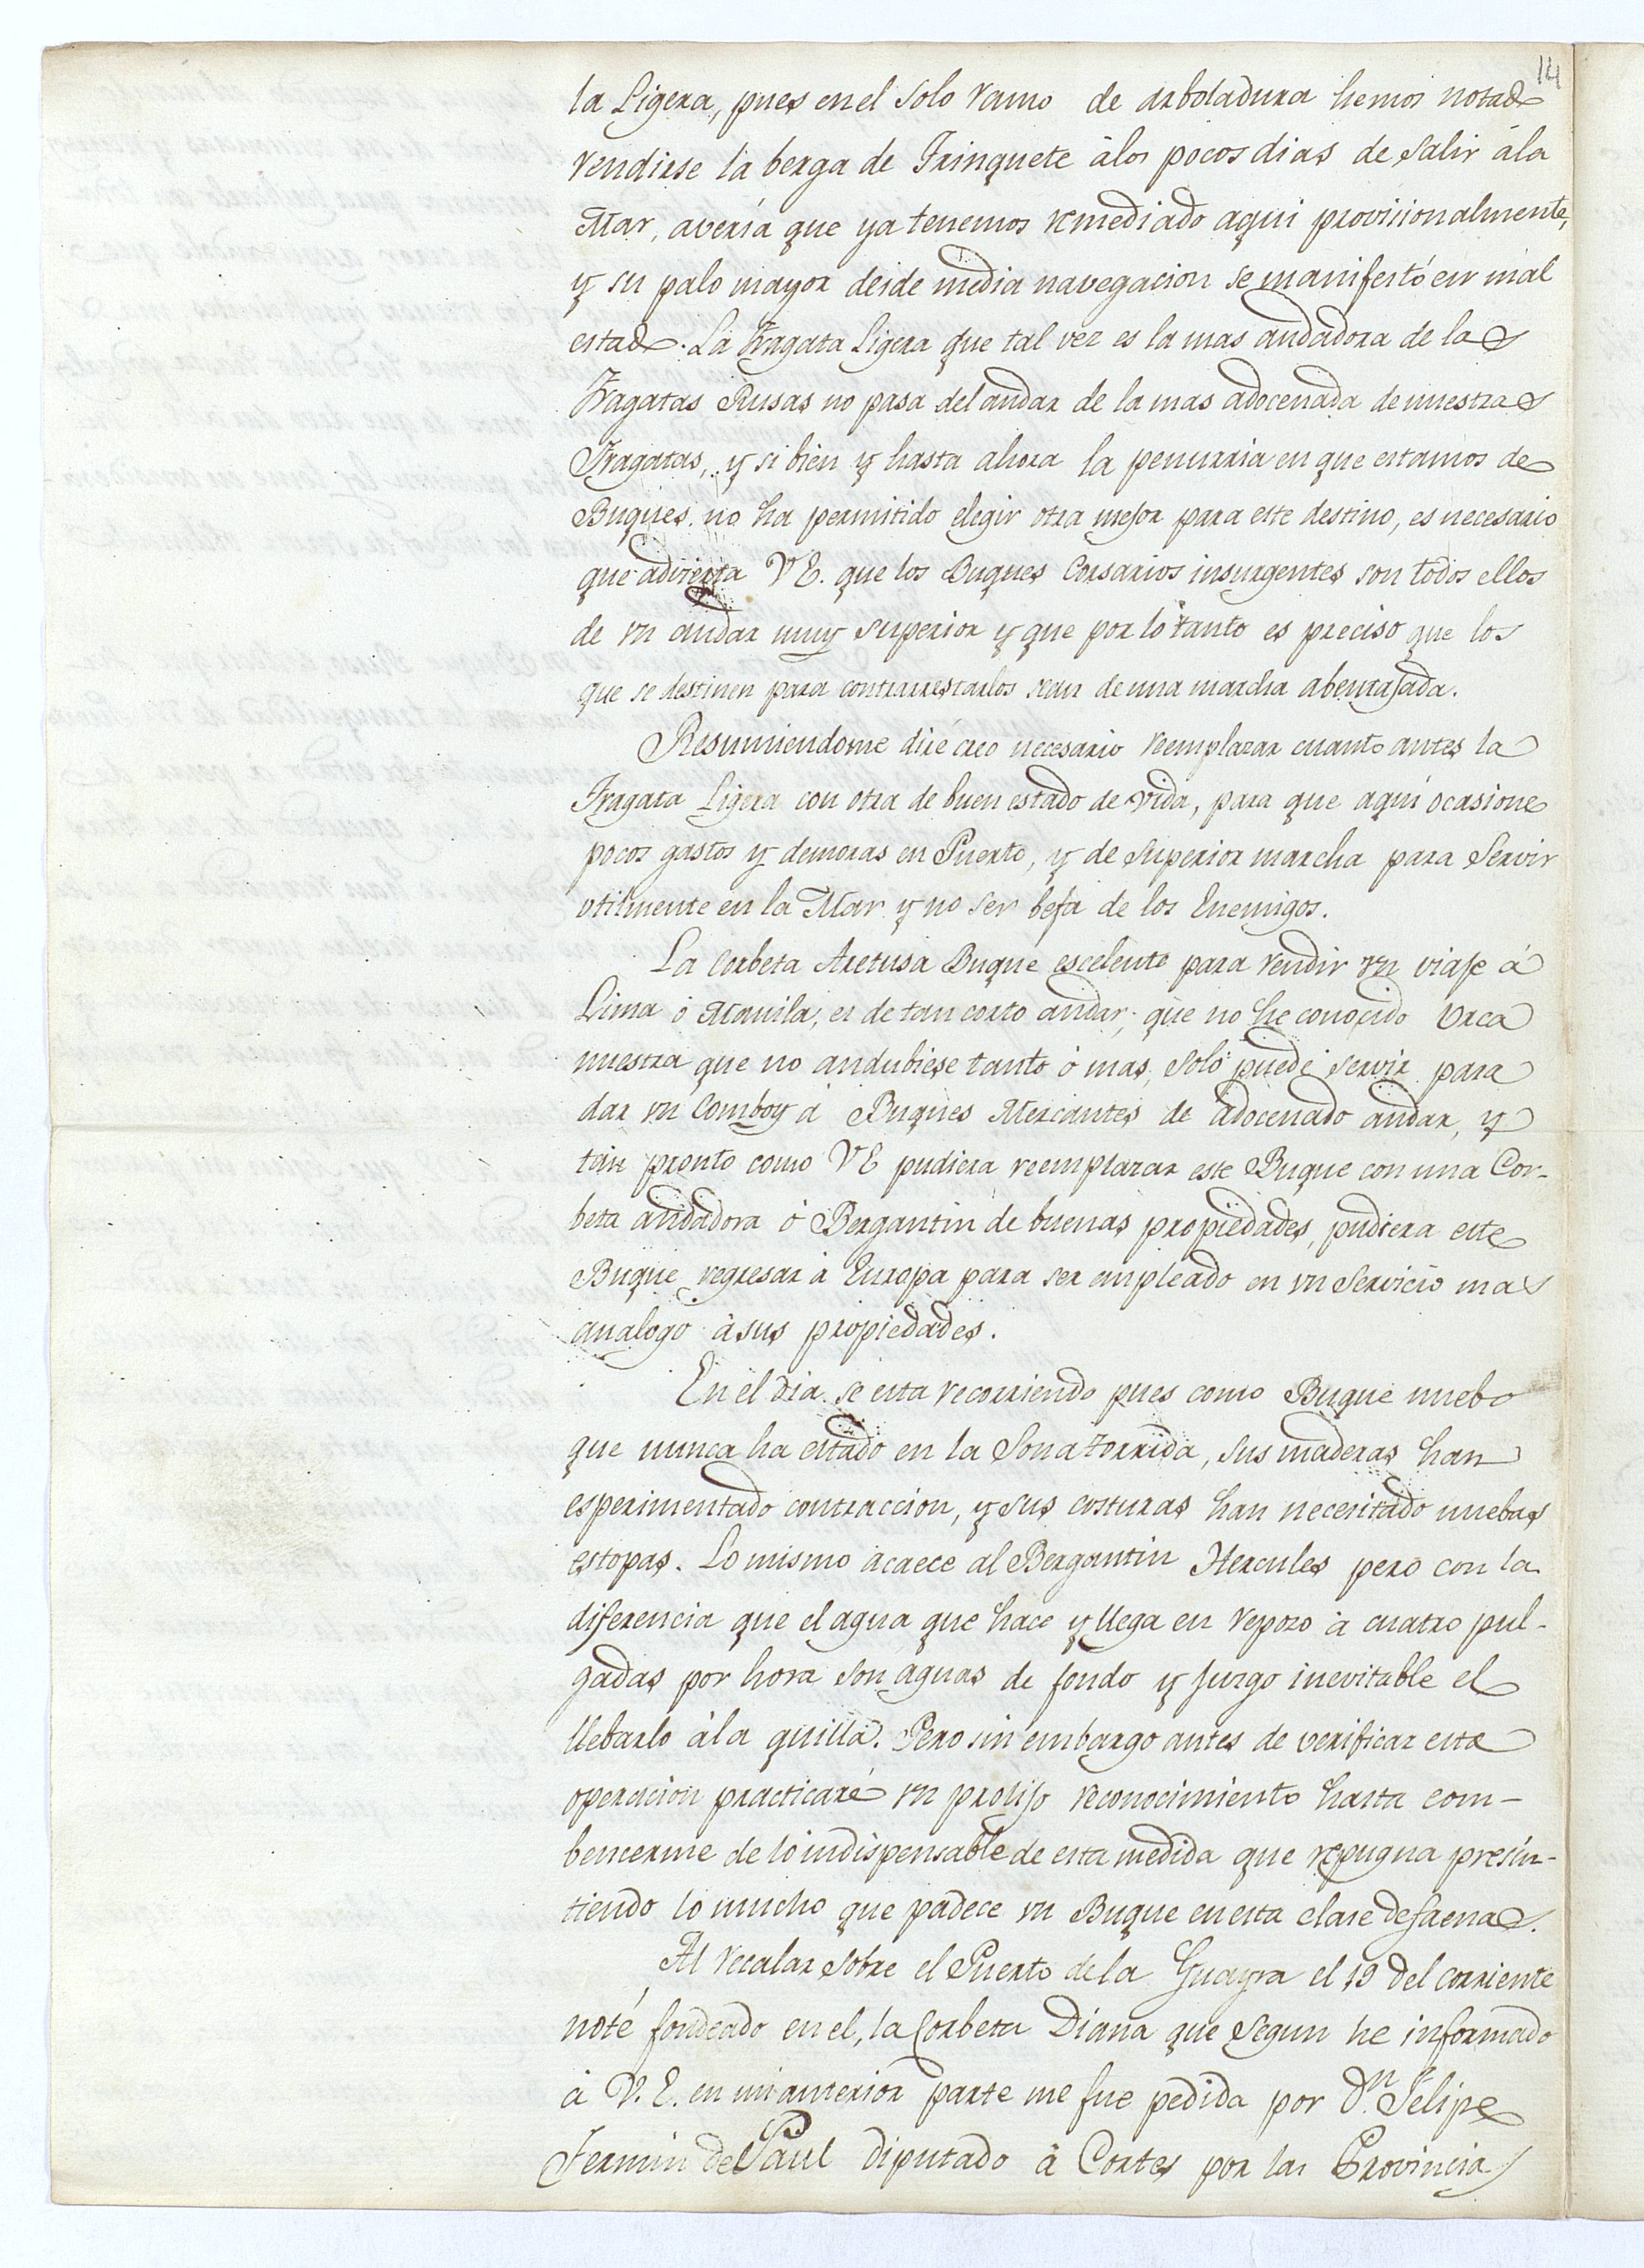 14
la Ligera, pues en el solo ramo de arboladura hemos notado
rendirse la berga de Trinquete à los pocos dias de salir à la
Mar, avería que ya tenemos remediado aqui provisionalmente,
y su palo mayor desde media navegacion se manifestó en mal
estado. La Fragata Ligera que tal vez es la mas andadora de las
Fragatas Rusas no pasa del andar de la mas adocenada de nuestras
Fragatas, y si bien y hasta ahora la penurria en que estamos de
Buques no ha permitido elegir otra mejor para este destino, es necesario
que advierta VE. que los Buques Corsarios insurgentes son todos ellos
de un andar muy superior y que por lo tanto es preciso que los
que se destinen para contrarrestarlos sean de una marcha abentajada.
Resumiendome diré creo necesario reemplazar cuanto antes la
Fragata Ligera con otra de buen estado de vida, para que aquí ocasione
pocos gastos y demoras en Puerto, y de superior marcha para Servir
utilmente en la Mar y no ser befa de los Enemigos.
La Corbeta Aretusa Buque escelente para rendir un viaje á
Lima ó Manila, es de tan corto andar, que no he conocido Urca
nuestra que no andubiese tanto ó mas, solo puede servir para
dar un Comboy à Buques Mercantes de adocenado andar, y
tan pronto como VE pudiera reemplazar este Buque con una Cor-
beta andadora ó Bergantin de buenas propiedades, pudiera este
Buque regresar à Europa para ser empleado en un Servicio mas
analogo à sus propiedades.
En el dia se esta recorriendo pues como Buque nuebo
que nunca ha estado en la Sona torrida, sus maderas han
esperimentado contraccion, y sus costuras han necesitado nuebas
estopas. Lo mismo acaece al Bergantin Hercules pero con la
diferencia que el agua que hace y llega en reposo à cuatro pul-
gadas por hora son aguas de fondo y juzgo inevitable el
llebarlo à la quilla. Pero sin embargo antes de verificar esta
operacion practicaré un prolijo reconocimiento hasta com-
bencerme de lo indispensable de esta medida que repugna presin-
tiendo lo mucho que padece un Buque en esta clase de faenas.
Al recalar sobre el Puerto de la Guayra el 19 del corriente
noté fondeado en el, la Corbeta Diana que segun he informado
à V.E. en mi anterior parte me fue pedida por Dn. Felipe
Fermin del Paul diputado à Cortes por las Provincias